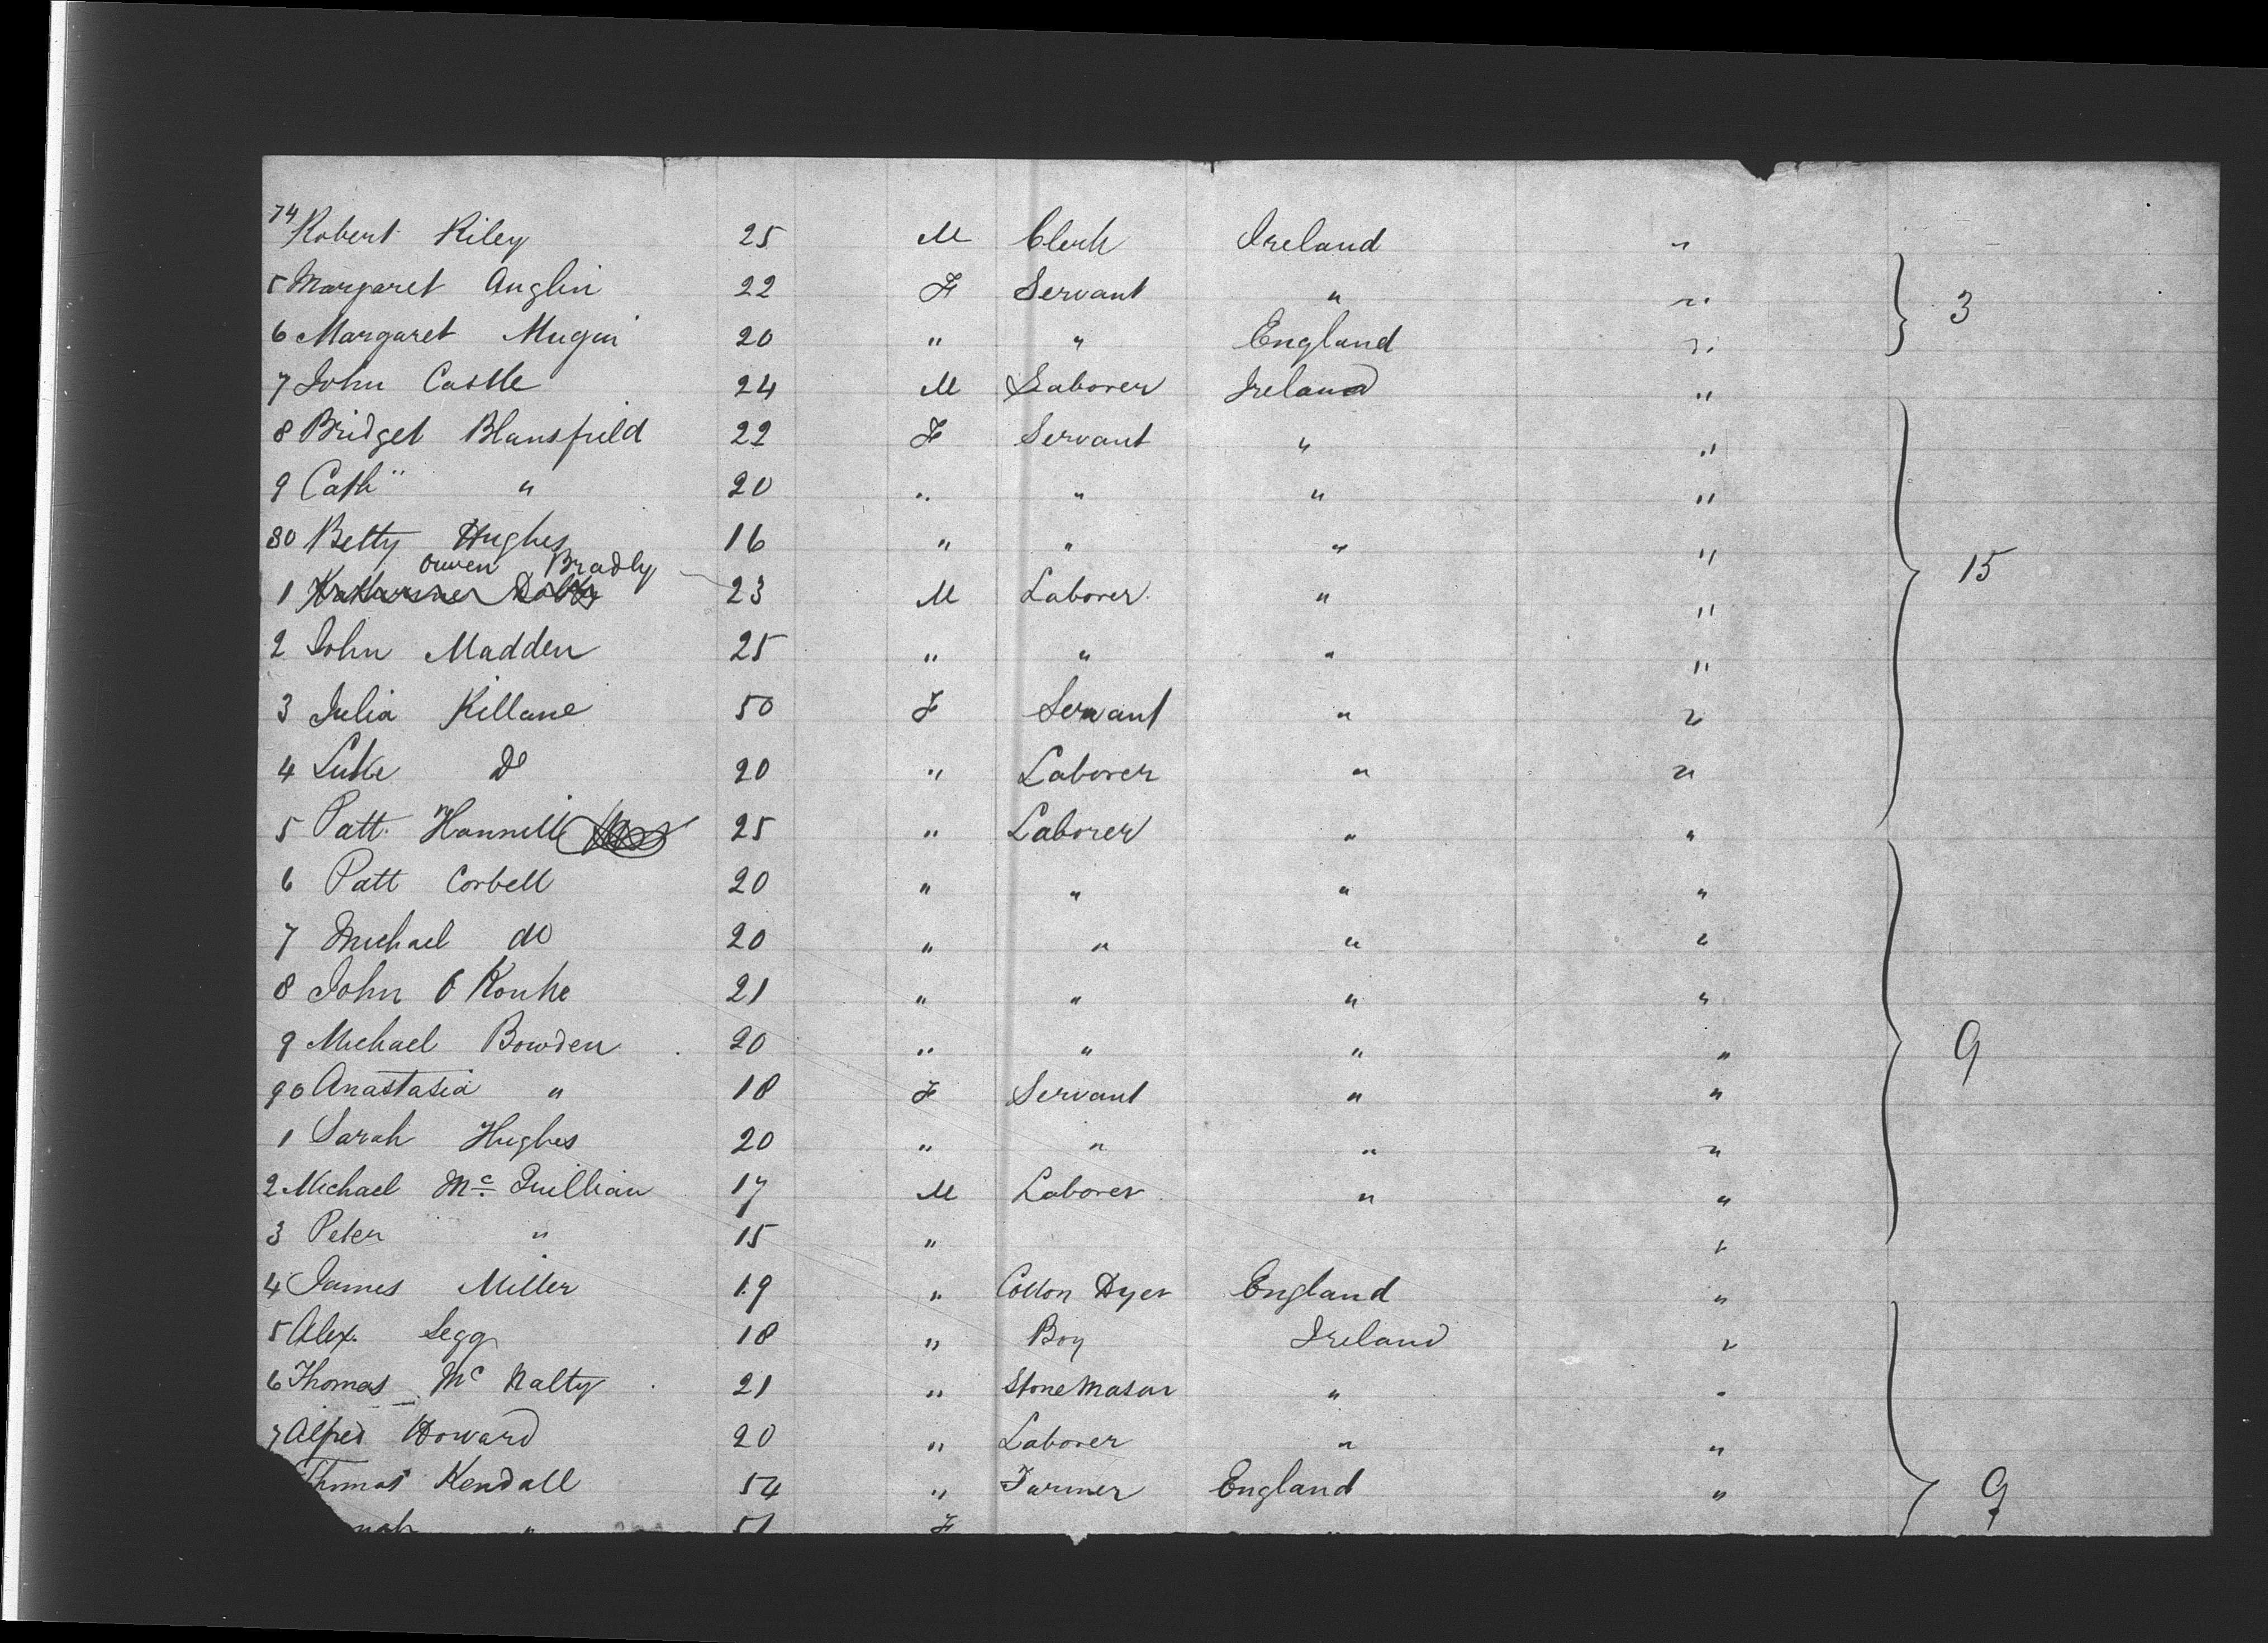 74 Robert Riley 25 M Clerk Ireland "
5 Margaret Anglin 22 F Servant " " 3
6 Margaret Mugin 20 " " England "
7 John Castle 24 M Laborer Ireland "
8 Bridget Blansfield 22 F Servant " "
9 Cath " " 20 " " " "
80 Betty Hughes 16 " " " "
Owen Bradly 15
1 23 M Laborer " "
2 John Madden 25 " " " "
3 Julia Killane 50 F Servant " "
4 Luke Do 20 " Laborer " "
5 Patt. 25 " Laborer " "
6 Patt Corbett 20 " " " "
7 Michael do 20 " " " "
8 John O 21 " " " "
9 Michael Bowden 20 " " " " 9
90 Anastasia " 18 F Servant " "
1 Sarah Hughes 20 " " " "
2 Michael Mc Quillian 17 M Laborer " "
3 Peter " 15 " "
4 James Miller 19 " Cotton Dyer England "
5 Alex. Legg 18 " Boy Ireland "
6 Thomas Mc Nalty 21 " Stone Mason " "
7 Alfred Howard 20 " Laborer " "
Thomas Kendall 54 " Farmer England " 9
" 51 F "